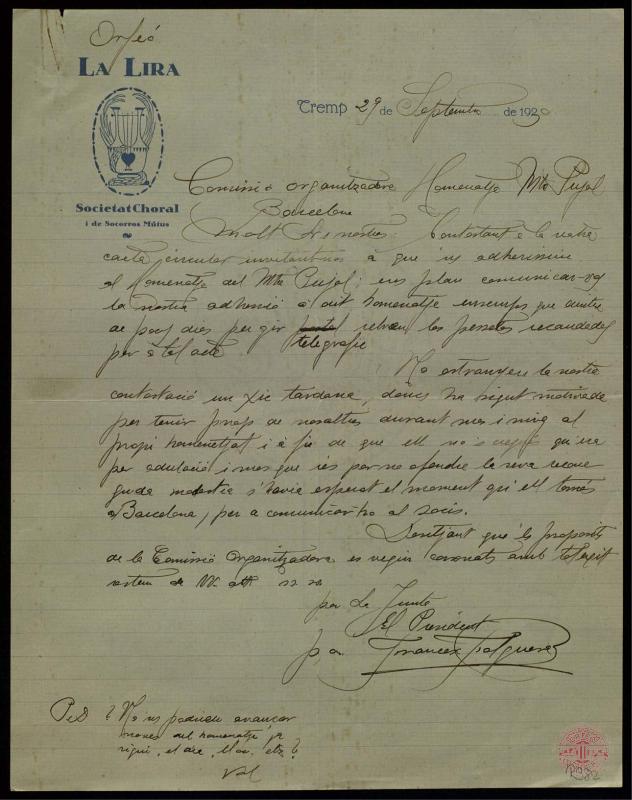 Orfeó
LA LIRA
Societat Choral
i de Socorros Mútus
Tremp 29 de Septembre de 1930
Comissió organitzadora Homenatje Mtre Pujol
Barcelona
Molt Srs nostres: Contestant a la vostra
carta circular invitantnos a que ens adherissim
al Homenatje del Mtre Pujol; ens plau comunicar-vos
la nostra adhesió a dit homenatje ensemps que dintre
de pocs dies per gir telegrafic rebreu les pessetes recaudades
per a tal acte
No estranyeu la nostra
contestació un xic tardana, doncs ha sigut motivada
per tenir prop de nosaltres durant mes i mitg al
propi homenatjat i a fi de que ell no s cregués qu'era
per adulació i mes que res per no ofendre la seva recone
guda modestia s'havia esperat el moment qu'ell tornés
a Barcelona, per a comunicar-ho al socis.
Desitjant que'ls proposits
de la Comissió Organitzadora es vegin coronats amb tot exit
restem de VV. att. ss. ss.
per La Junta
El President
p. o. Francesc Falguera
P.D. ? No'ns podrieu avançar
noves del homenatje, ja
sigui, el dia, lloc, etz.?
Val